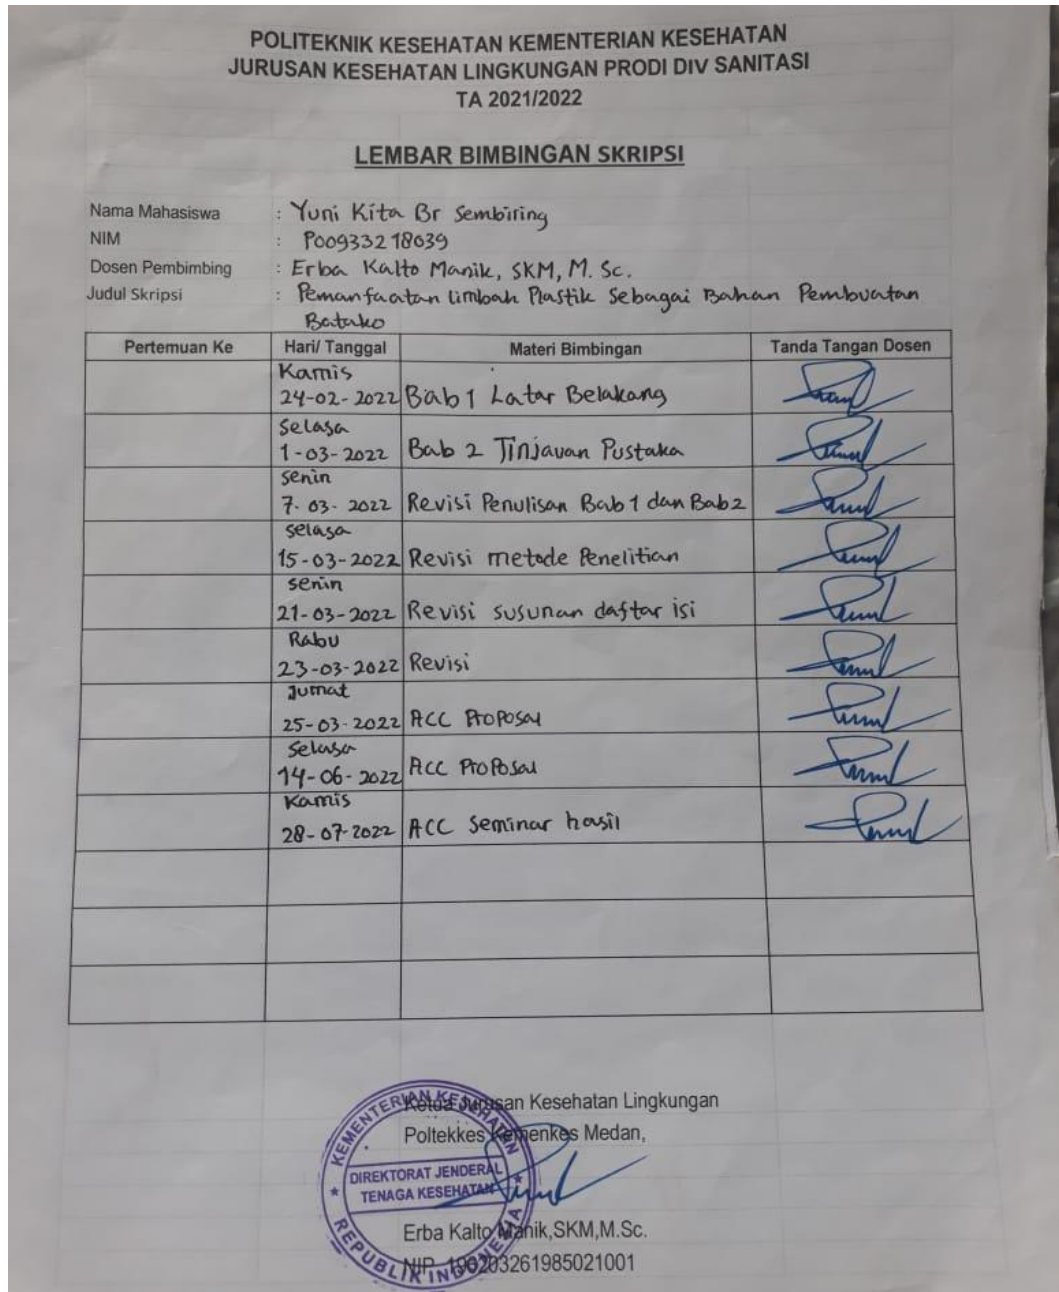 POLITEKNIK KESEHATAN KEMENTERIAN KESEHATAN
JURUSAN KESEHATAN LINGKUNGAN PRODI DIV SANITASI
TA 2021/2022
LEMBAR BIMBINGAN SKRIPSI
Nama Mahasiswa : Yuni Kita Br Sembiring
NIM : P00933218039
Dosen Pembimbing : Erba Kalto Manik, SKM, M. Sc.
Judul Skripsi : Pemanfaatan limbah Plastik Sebagai Bahan Pembuatan
Batako
Pertemuan Ke Hari/ Tanggal Materi Bimbingan Tanda Tangan Dosen
Kamis
24-02-2022 Bab 1 Latar Belakang
Selasa
1-03-2022 Bab 2 Tinjauan Pustaka
Senin
7-03-2022 Revisi Penulisan Bab 1 dan Bab 2
Selasa
15-03-2022 Revisi metode Penelitian
Senin
21-03-2022 Revisi susunan daftar isi
Rabu
23-03-2022 Revisi
Jumat
25-03-2022 ACC Proposal
Selasa
14-06-2022 ACC Proposal
Kamis
28-07-2022 ACC Seminar hasil
Ketua Jurusan Kesehatan Lingkungan
Poltekkes Kemenkes Medan,
KEMENTERIAN KESEHATAN
DIREKTORAT JENDERAL
TENAGA KESEHATAN
REPUBLIK INDONESIA
Erba Kalto Manik,SKM,M.Sc.
NIP. 196203261985021001